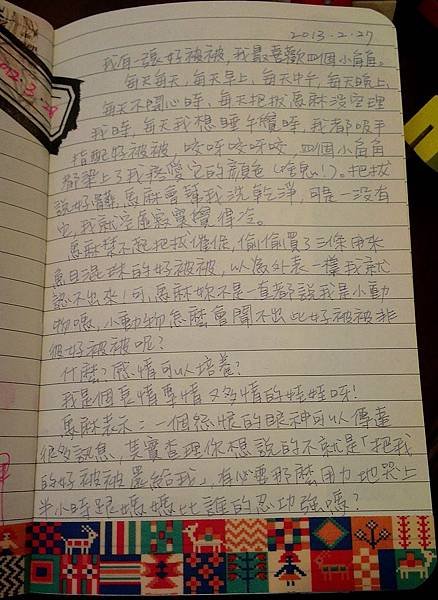 2013.2.27
我有一張好被被,我最喜歡四個小角角。
每天每天,每天早上,每天中午,每天晚上,
每天不開心時,每天把拔馬麻沒空理
我時,每天我想睡午覺時,我都吸手
指配好被被,咬呀咬呀咬,四個小角角
都染上了我務愛它的顏色(啥鬼!)。把拔
說好髒,馬麻會幫我洗乾淨,可是一沒有
它,我就空虛寂寞覺得冷。
馬麻禁不起把拔催促,偷偷買了三條用來
魚目混珠的好被被,以為外表一樣我就
認不出來!可,馬麻妳不是一直都說我是小動
物嗎,小動物怎麼會聞不出此好被被非
彼好被被呢?
什麼?感情可以培養?
我是個真情專情又多情的娃娃呀!
馬麻表示:一個怨恨的眼神可以傳達
很多訊息,其實查理你想說的不就是「把我
的好被被還給我」,有必要那麼用力地哭上
半小時跟媽媽比誰的忍功強嗎?